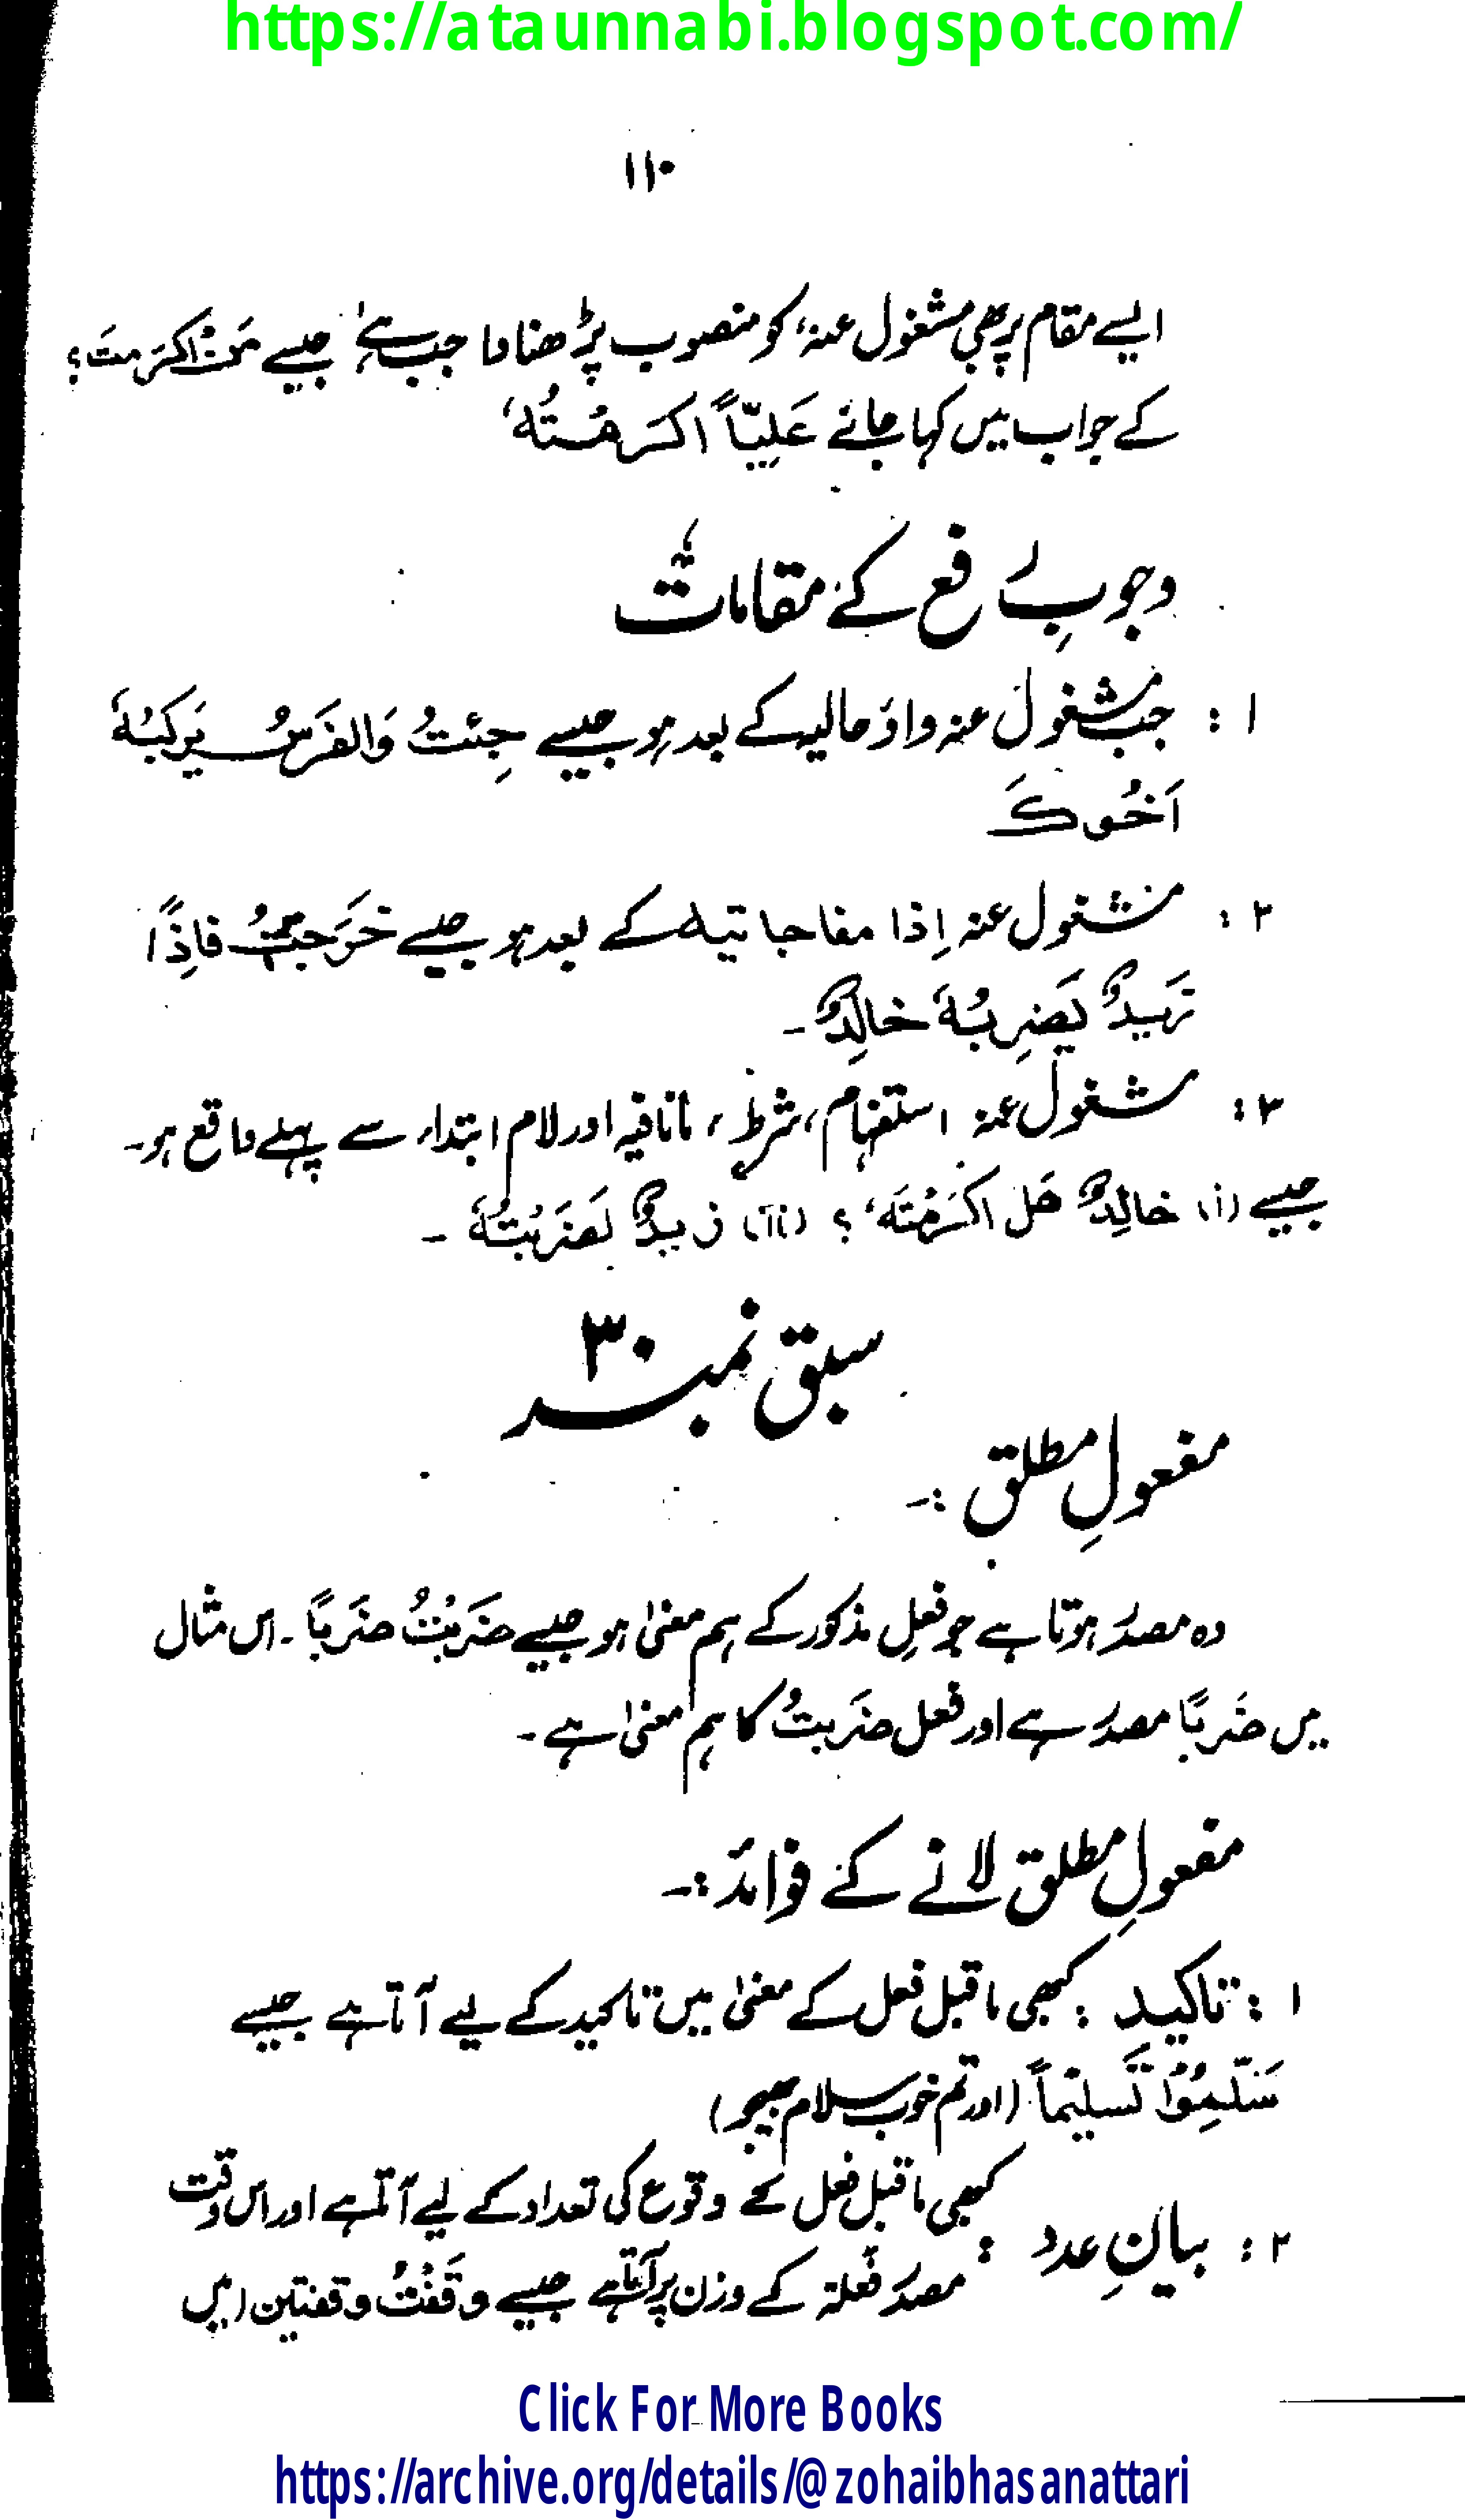 https://ataunnabi.blogspot.com/
۱۱۰
ایسے مقام پر بھی مشغول عنہٗ کو منصوب پڑھنا واجب ہے جیسے مَنْ اَکْرَمتَ؟
کے جواب میں کہا جائے عَلِیّاً اکرَمْتُہٗ
وجوبِ رفع کے مقامات
۱ : جب مشغول عنہ واوَ حالیہ کے بعد ہو جیسے جِئتُ وَالفَرَسُ یَرکَبُہٗ
اَخُوکَ
۲ : مشغول عنہ اِذا مفاجاتیہ کے بعد ہو جیسے خَرَجتُ فاِذًا
زَیدٌ یَضرِبُہٗ خالِدٌ ۔
۳ : مشغول عنہ استفہام، شرط، ما نافیہ اور لام ابتداء سے پہلے واقع ہو۔
جیسے (i) خالِدٌ ھَل اکرَمْتَہٗ؟ (ii) زیدٌ لَضَرَبْتُہٗ ۔
سبق نمبر ۳۰
مفعولِ مطلق :۔
وہ مصدر ہوتا ہے جو فعلِ مذکور کے ہم معنیٰ ہو جیسے ضَرَبْتُ ضَرباً ۔ اس مثال
میں ضَرباً مصدر ہے اور فعل ضَربتُ کا ہم معنیٰ ہے ۔
مفعولِ مطلق لانے کے فوائد :۔
۱ : تاکید : کبھی ماقبل فعل کے معنیٰ میں تاکید کے لیے آتا ہے جیسے
سَلِّمُوْا تَسلیْماً (اور تم خوب سلام بھیجو)
۲ : بیانِ عدد : کبھی ماقبل فعل کے وقوع کی تعداد کے لیے آتا ہے اور اس وقت
مصدر فَعلۃ کے وزن پر آتا ہے جیسے وقَفْتُ وقفتین (میں
Click For More Books
https://archive.org/details/@zohaibhasanattari